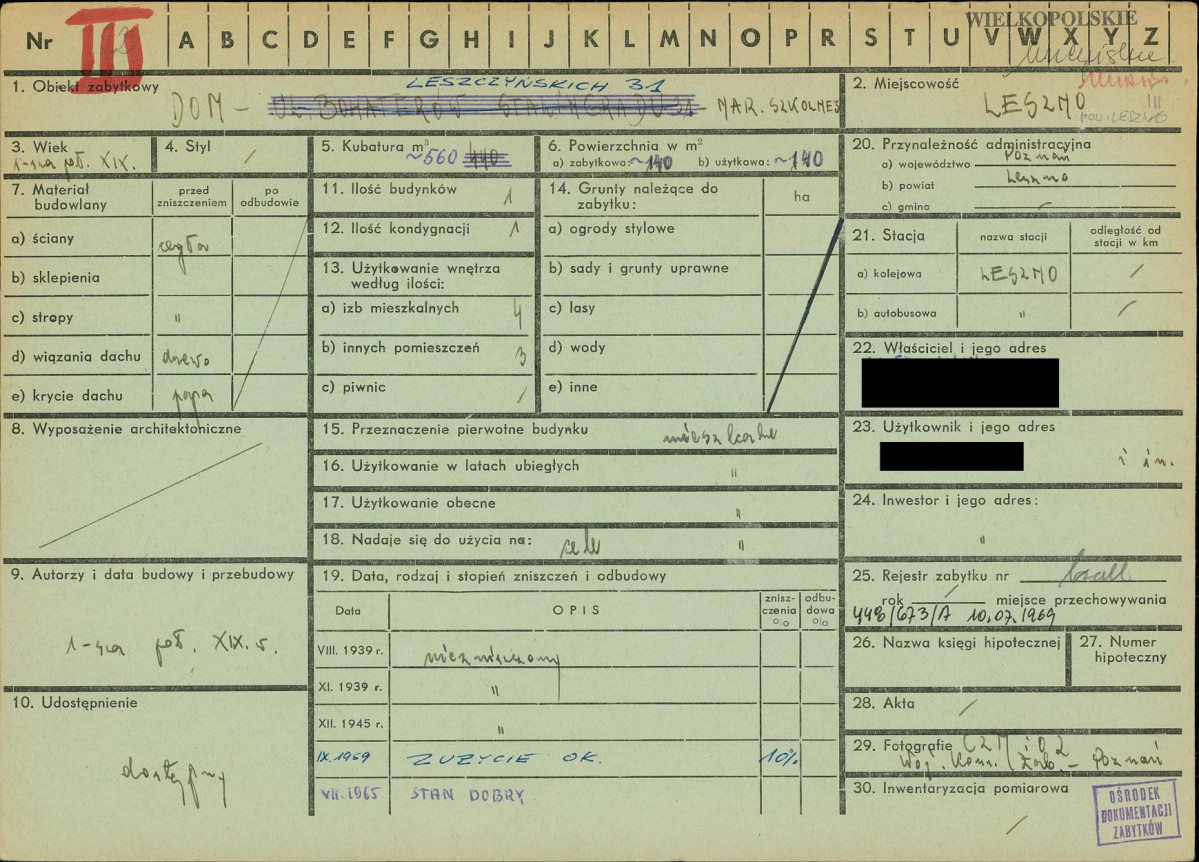 Nr III A B C D E F G H I J K L M N O P R S T U V W X Y Z
WIELKOPOLSKIE
1. Obiekt zabytkowy
LESZCZYŃSKICH 31
DOM - UL. BOHATERÓW STALINGRADU 31 NAR. SZKOLNEJ
2. Miejscowość
LESZNO
3. Wiek
1-sza poł. XIX.
4. Styl
/
5. Kubatura m³
~560 440
6. Powierzchnia w m²
a) zabytkowa: ~140 b) użytkowa: ~140
20. Przynależność administracyjna
a) województwo Poznań
b) powiat Leszno
c) gmina
7. Materiał budowlany
przed zniszczeniem
po odbudowie
a) ściany cegła
b) sklepienia
c) stropy "
d) wiązania dachu drewo
e) krycie dachu papa
11. Ilość budynków 1
12. Ilość kondygnacji 1
13. Użytkowanie wnętrza według ilości:
a) izb mieszkalnych 4
b) innych pomieszczeń 3
c) piwnic /
14. Grunty należące do zabytku:
ha
a) ogrody stylowe
b) sady i grunty uprawne
c) lasy
d) wody
e) inne
21. Stacja
nazwa stacji
odległość od stacji w km
a) kolejowa LESZNO /
b) autobusowa " /
22. Właściciel i jego adres
23. Użytkownik i jego adres
i in.
24. Inwestor i jego adres:
"
8. Wyposażenie architektoniczne
15. Przeznaczenie pierwotne budynku mieszkalne
16. Użytkowanie w latach ubiegłych "
17. Użytkowanie obecne "
18. Nadaje się do użycia na: cele "
9. Autorzy i data budowy i przebudowy
1-sza poł. XIX w.
10. Udostępnienie
dostępny
19. Data, rodzaj i stopień zniszczeń i odbudowy
Data
OPIS
zniszczenia %
odbudowa %
VIII. 1939 r. niezniszczony
XI. 1939 r. "
XII. 1945 r. "
IX.1959 ZUŻYCIE OK. 10%
VII.1965 STAN DOBRY
25. Rejestr zabytku nr
rok / miejsce przechowywania
448/673/A 10.07.1969
26. Nazwa księgi hipotecznej
27. Numer hipoteczny
28. Akta /
29. Fotografie CZM i OZ
Woj. Kons. Zab. - Poznań
30. Inwentaryzacja pomiarowa
/
OŚRODEK
DOKUMENTACJI
ZABYTKÓW